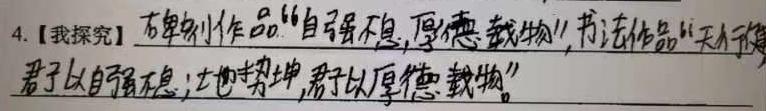 4.【我探究】 石碑刻作品“自强不息,厚德载物”,书法作品“天行健
君子以自强不息;土也势坤,君子以厚德载物”。